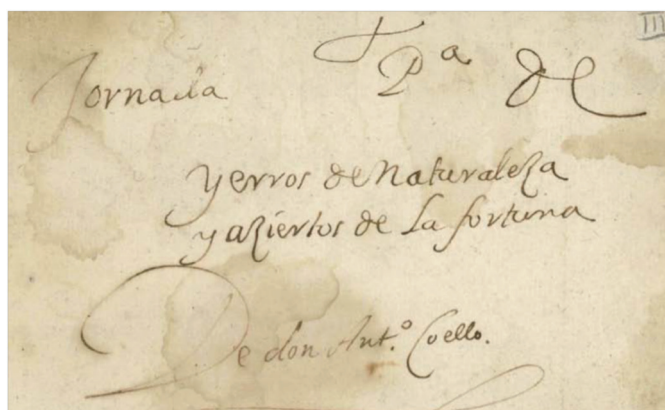 III
Jornada Pª de
yerros de Naturaleza
y aziertos de la fortuna
De don Antº Coello.